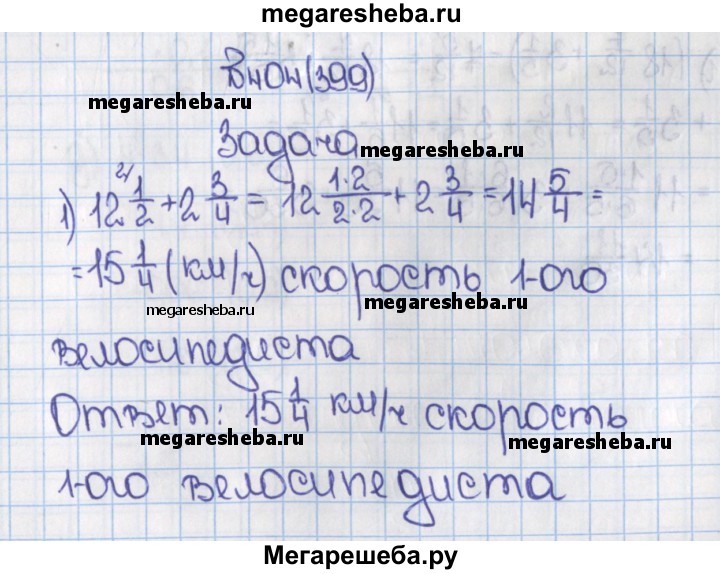 megaresheba.ru
В404(399)
megaresheba.ru
Задача
megaresheba.ru
1) 12 2/ 1/2 + 2 3/4 = 12 1·2/2·2 + 2 3/4 = 14 5/4 =
= 15 1/4 (км/ч) скорость 1-ого
megaresheba.ru megaresheba.ru
велосипедиста
Ответ: 15 1/4 км/ч скорость
megaresheba.ru megaresheba.ru
1-ого велосипедиста
Мегарешеба.ру